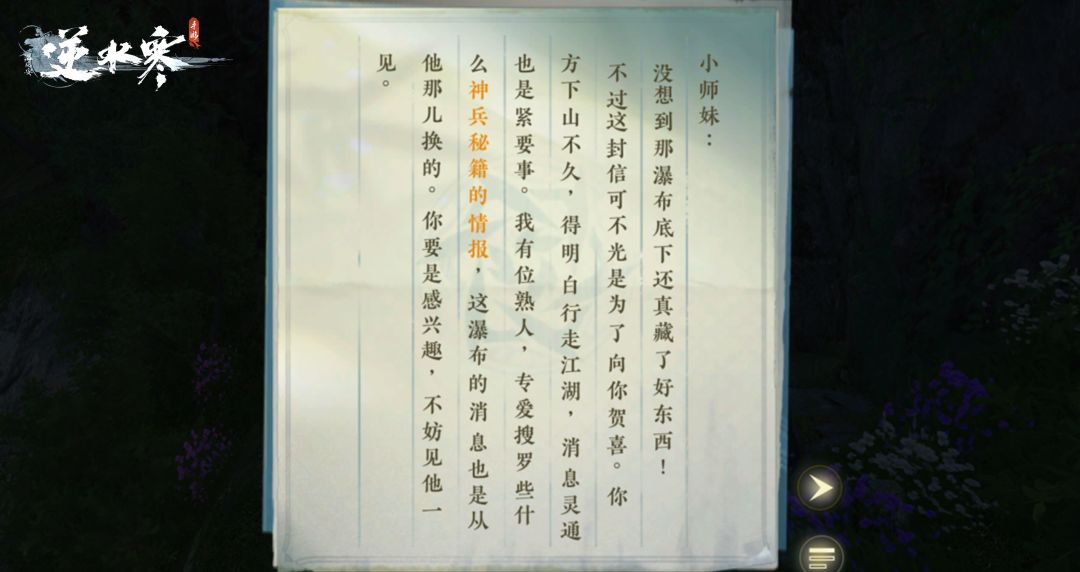 逆水寒
手游
小师妹：
没想到那瀑布底下还真藏了好东西！
不过这封信可不光是为了向你贺喜。你
方下山不久，得明白行走江湖，消息灵通
也是紧要事。我有位熟人，专爱搜罗些什
么神兵秘籍的情报，这瀑布的消息也是从
他那儿换的。你要是感兴趣，不妨见他一
见。